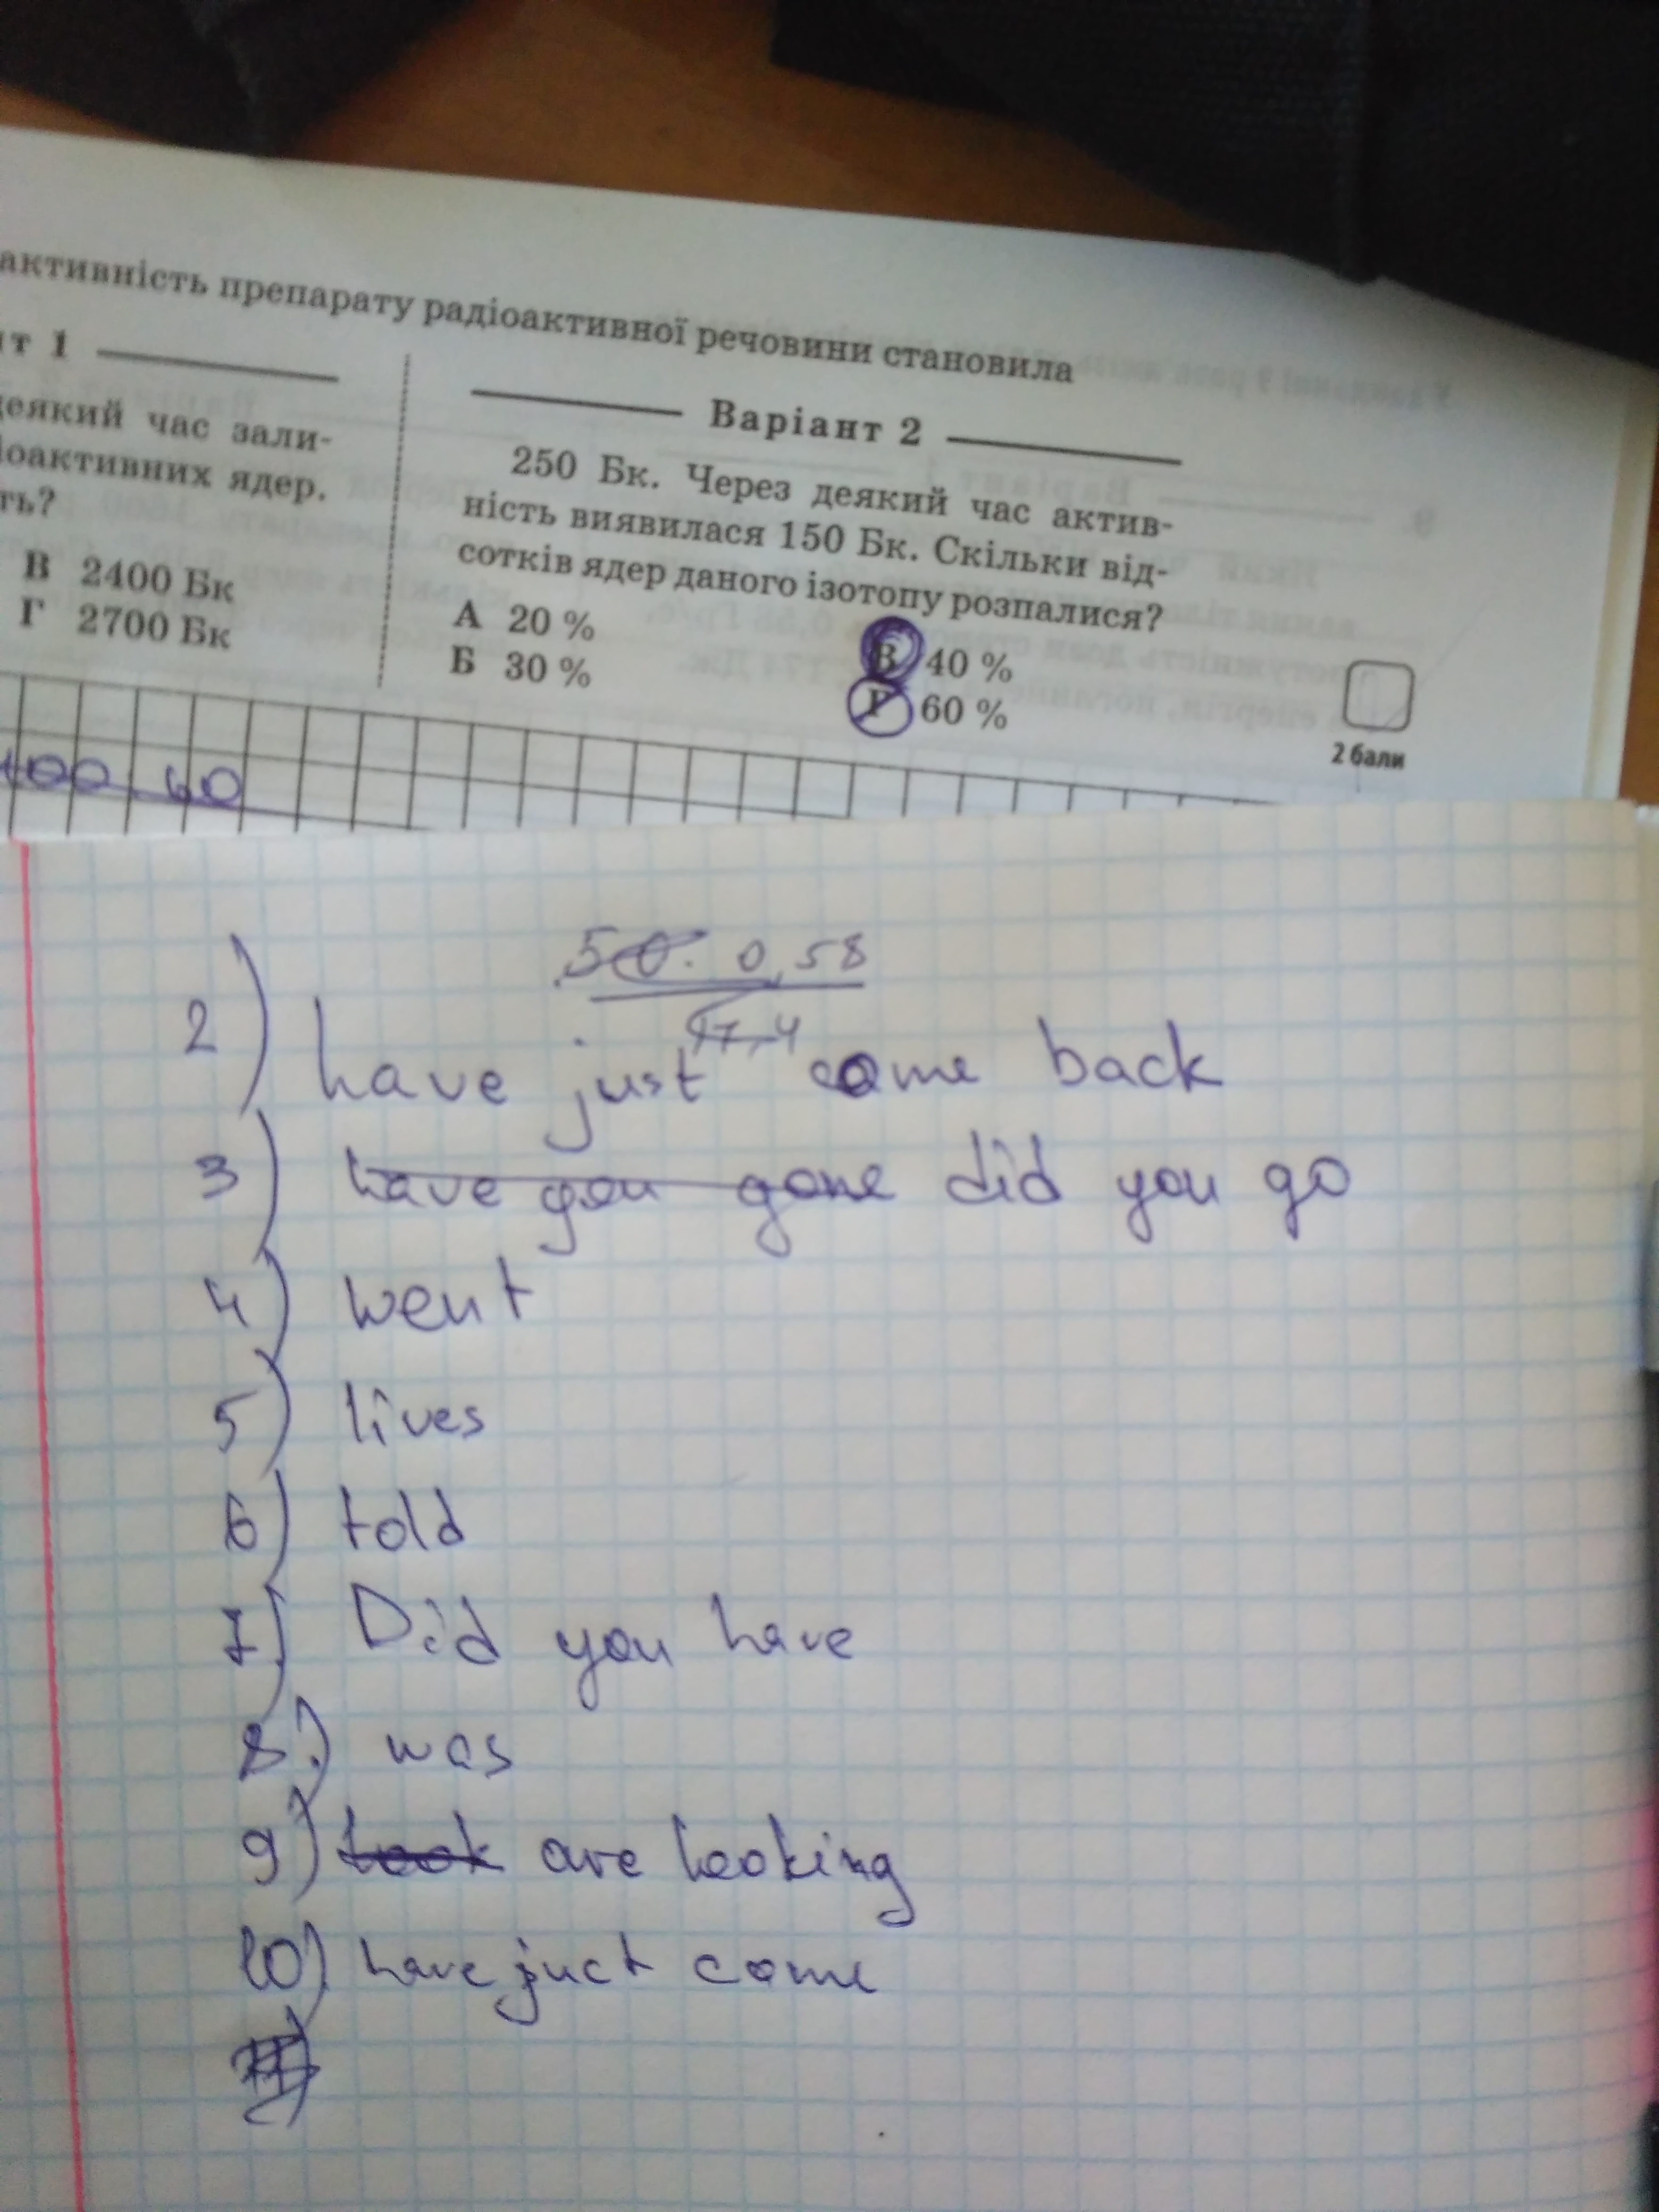 активність препарату радіоактивної речовини становила
т 1
деякий час зали-
іоактивних ядер.
ть?
В 2400 Бк
Г 2700 Бк
Варіант 2
250 Бк. Через деякий час актив-
ність виявилася 150 Бк. Скільки від-
сотків ядер даного ізотопу розпалися?
А 20 %
Б 30 %
В 40 %
Г 60 %
2 бали
100 60
50. 0,58
17,4
2) have just come back
3) have you gone did you go
4) went
5) lives
6) told
7) Did you have
8.) was
9) look are looking
10) have just come
11)